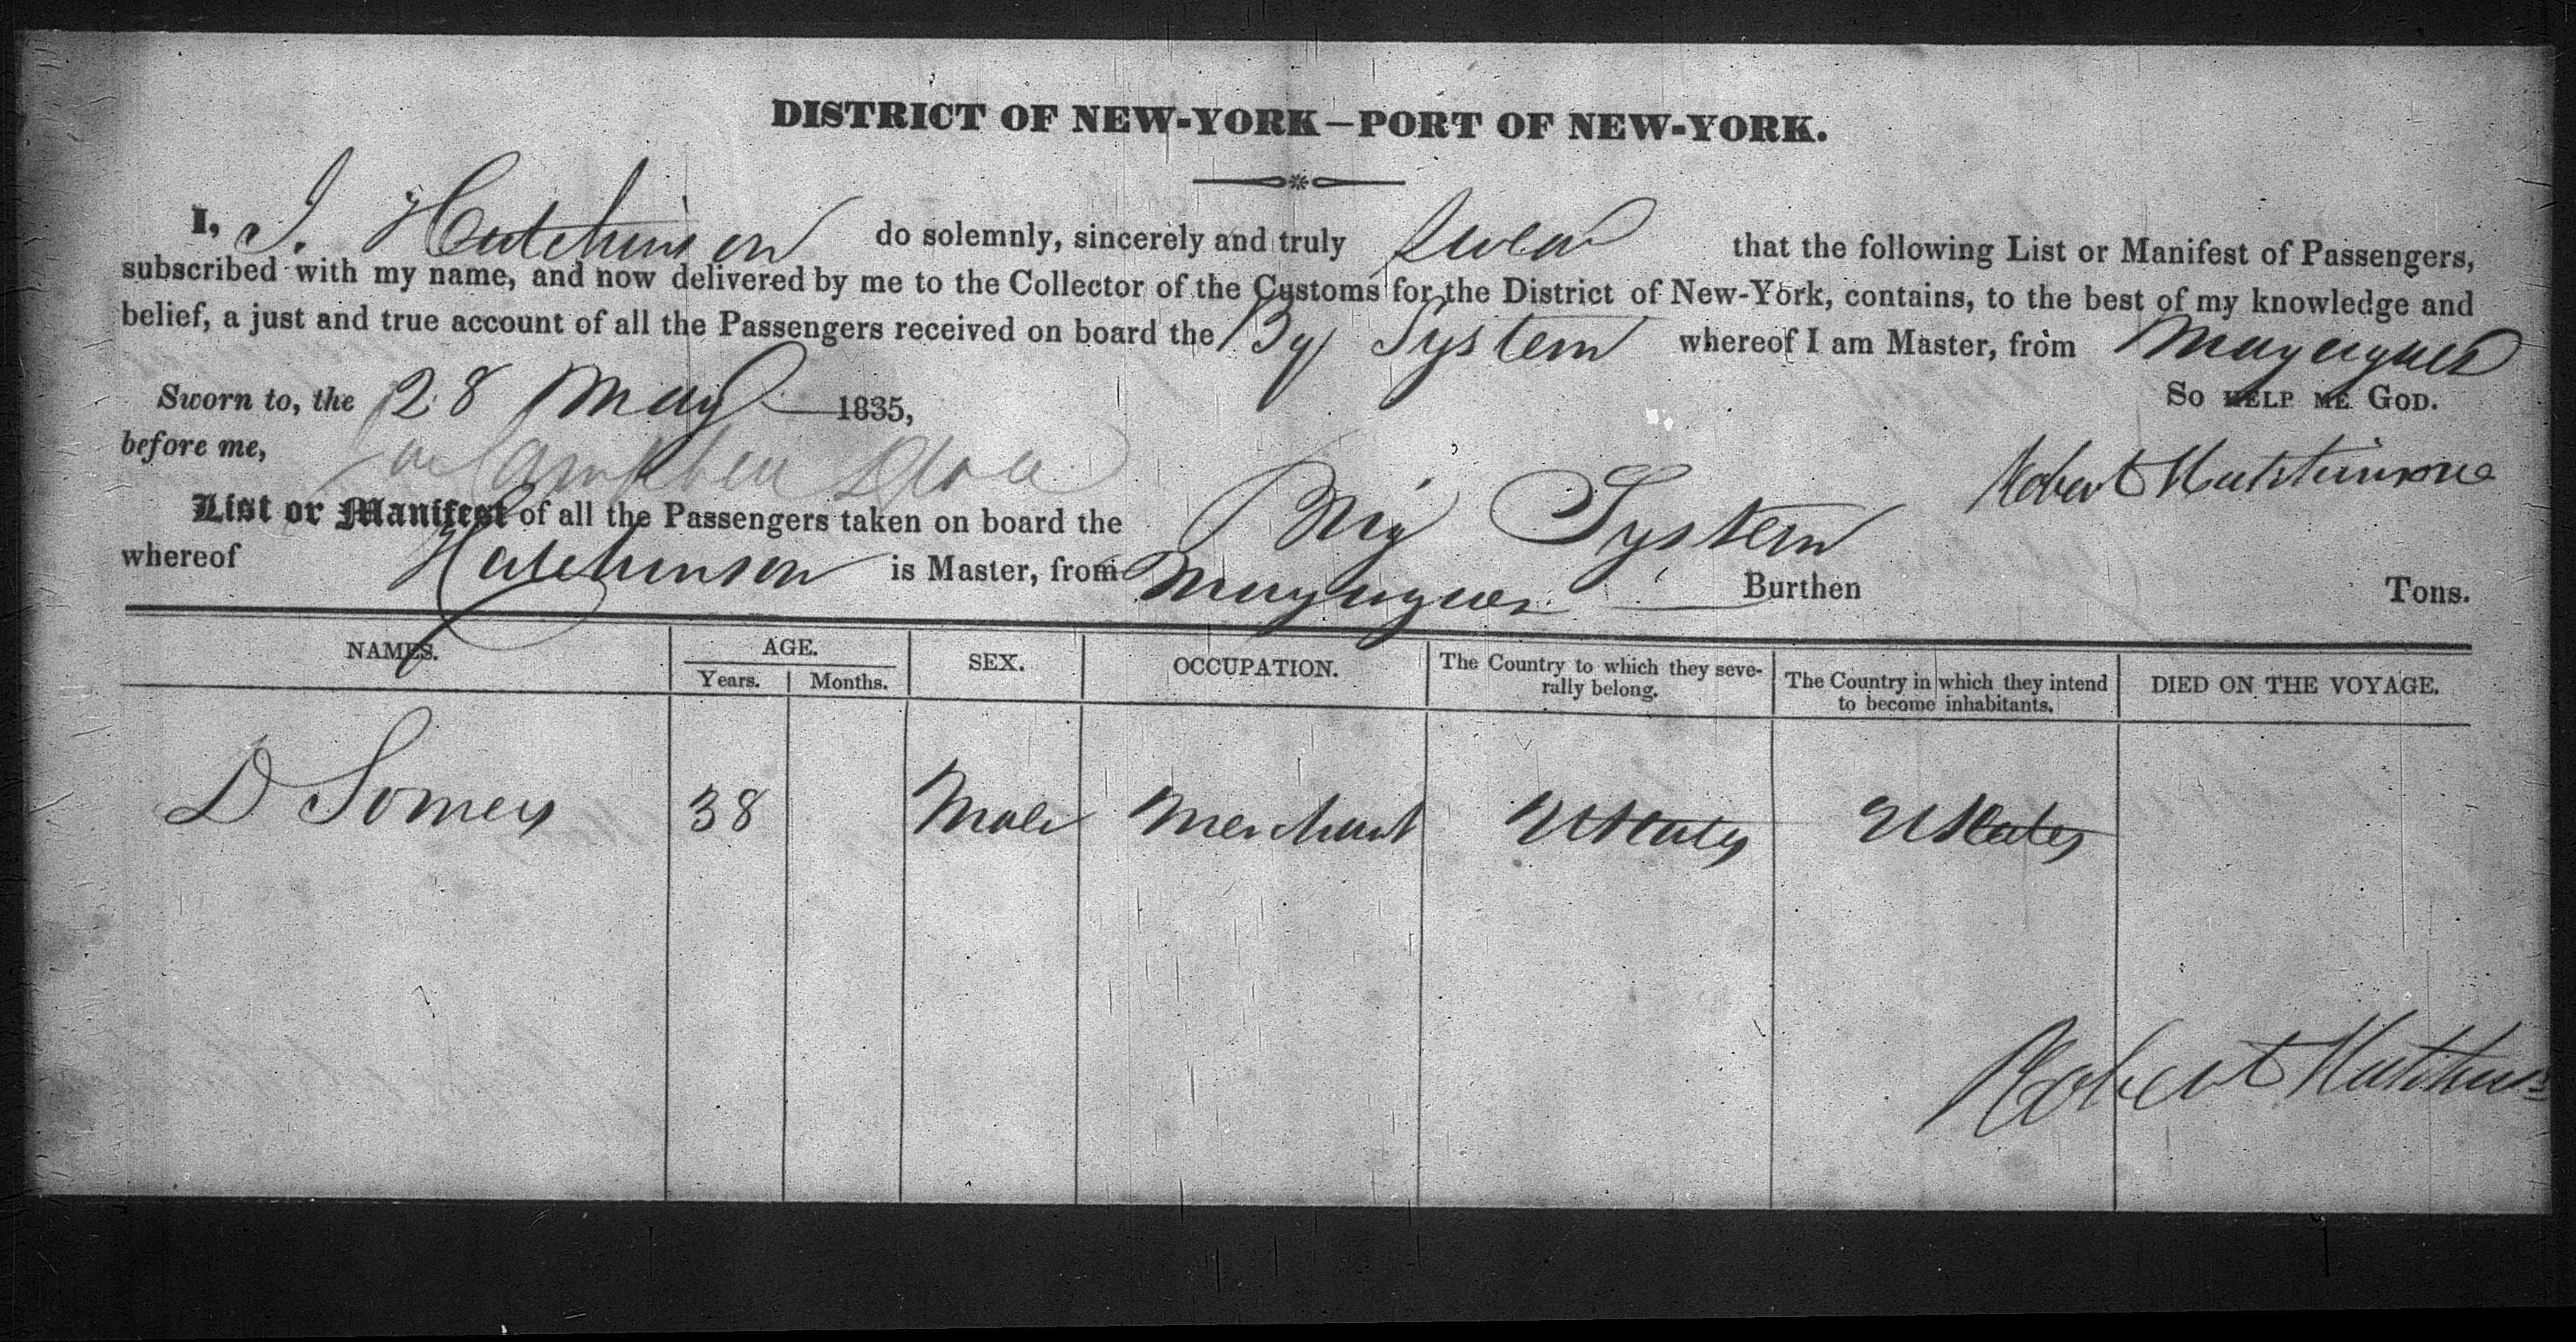 DISTRICT OF NEW-YORK—PORT OF NEW-YORK.
I, J. Hutchinson do solemnly, sincerely and truly swear that the following List or Manifest of Passengers,
subscribed with my name, and now delivered by me to the Collector of the Customs for the District of New-York, contains, to the best of my knowledge and
belief, a just and true account of all the Passengers received on board the Bg System whereof I am Master, from Mayaguez
Sworn to, the 28 May 1835, So HELP ME GOD.
before me,
Robert Hutchinson
List or Manifest of all the Passengers taken on board the Brig System
whereof Hutchinson is Master, from Mayaguez Burthen Tons.
NAMES. AGE. SEX. OCCUPATION. The Country to which they seve-
rally belong. The Country in which they intend
to become inhabitants. DIED ON THE VOYAGE.
Years. Months.
D Somers 38 Male Merchant U States U States
Robert Hutchins